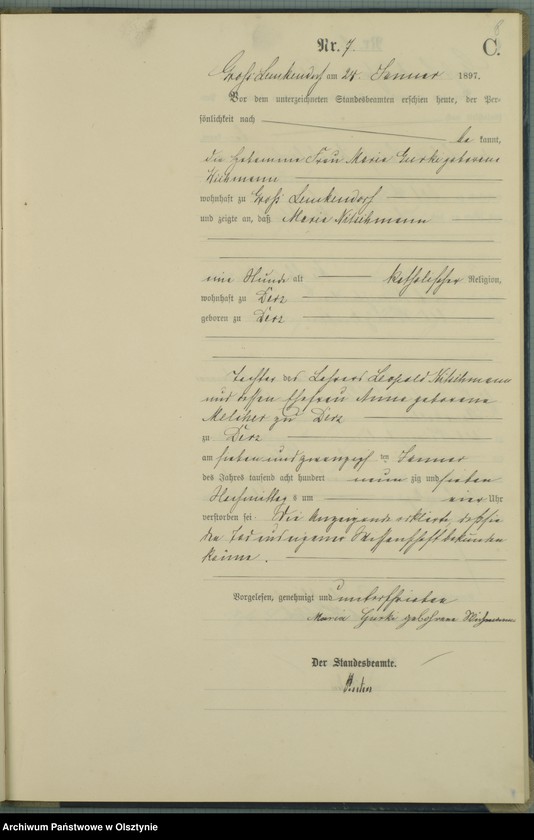 Nr. 7.
C.
Groß Lemkendorf am 28. Januar 1897.
Vor dem unterzeichneten Standesbeamten erschien heute, der Per-
sönlichkeit nach
be kannt,
die Hebamme Frau Maria Gurki geborene
Wichmann
wohnhaft zu Groß Lemkendorf
und zeigte an, daß Maria Nitschmann
eine Stunde alt katholischer Religion,
wohnhaft zu Derz
geboren zu Derz
Tochter des Lehrers Leopold Nitschmann
und dessen Ehefrau Anna geborene
Melcher zu Derz
zu Derz
am sieben und zwanzigsten Januar
des Jahres tausend acht hundert neun zig und sieben
Nachmittag s um vier Uhr
verstorben sei. Die Anzeigende erklärte, daß sie
den Tod aus eigener Wissenschaft bekunden
könne.
Vorgelesen, genehmigt und unterschrieben
Maria Gurki gebohrene Wichmann
Der Standesbeamte.
Archiwum Państwowe w Olsztynie